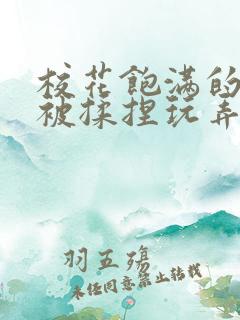 校花飽满的
被揉捏玩弄
羽五殇
未经同意禁止转载